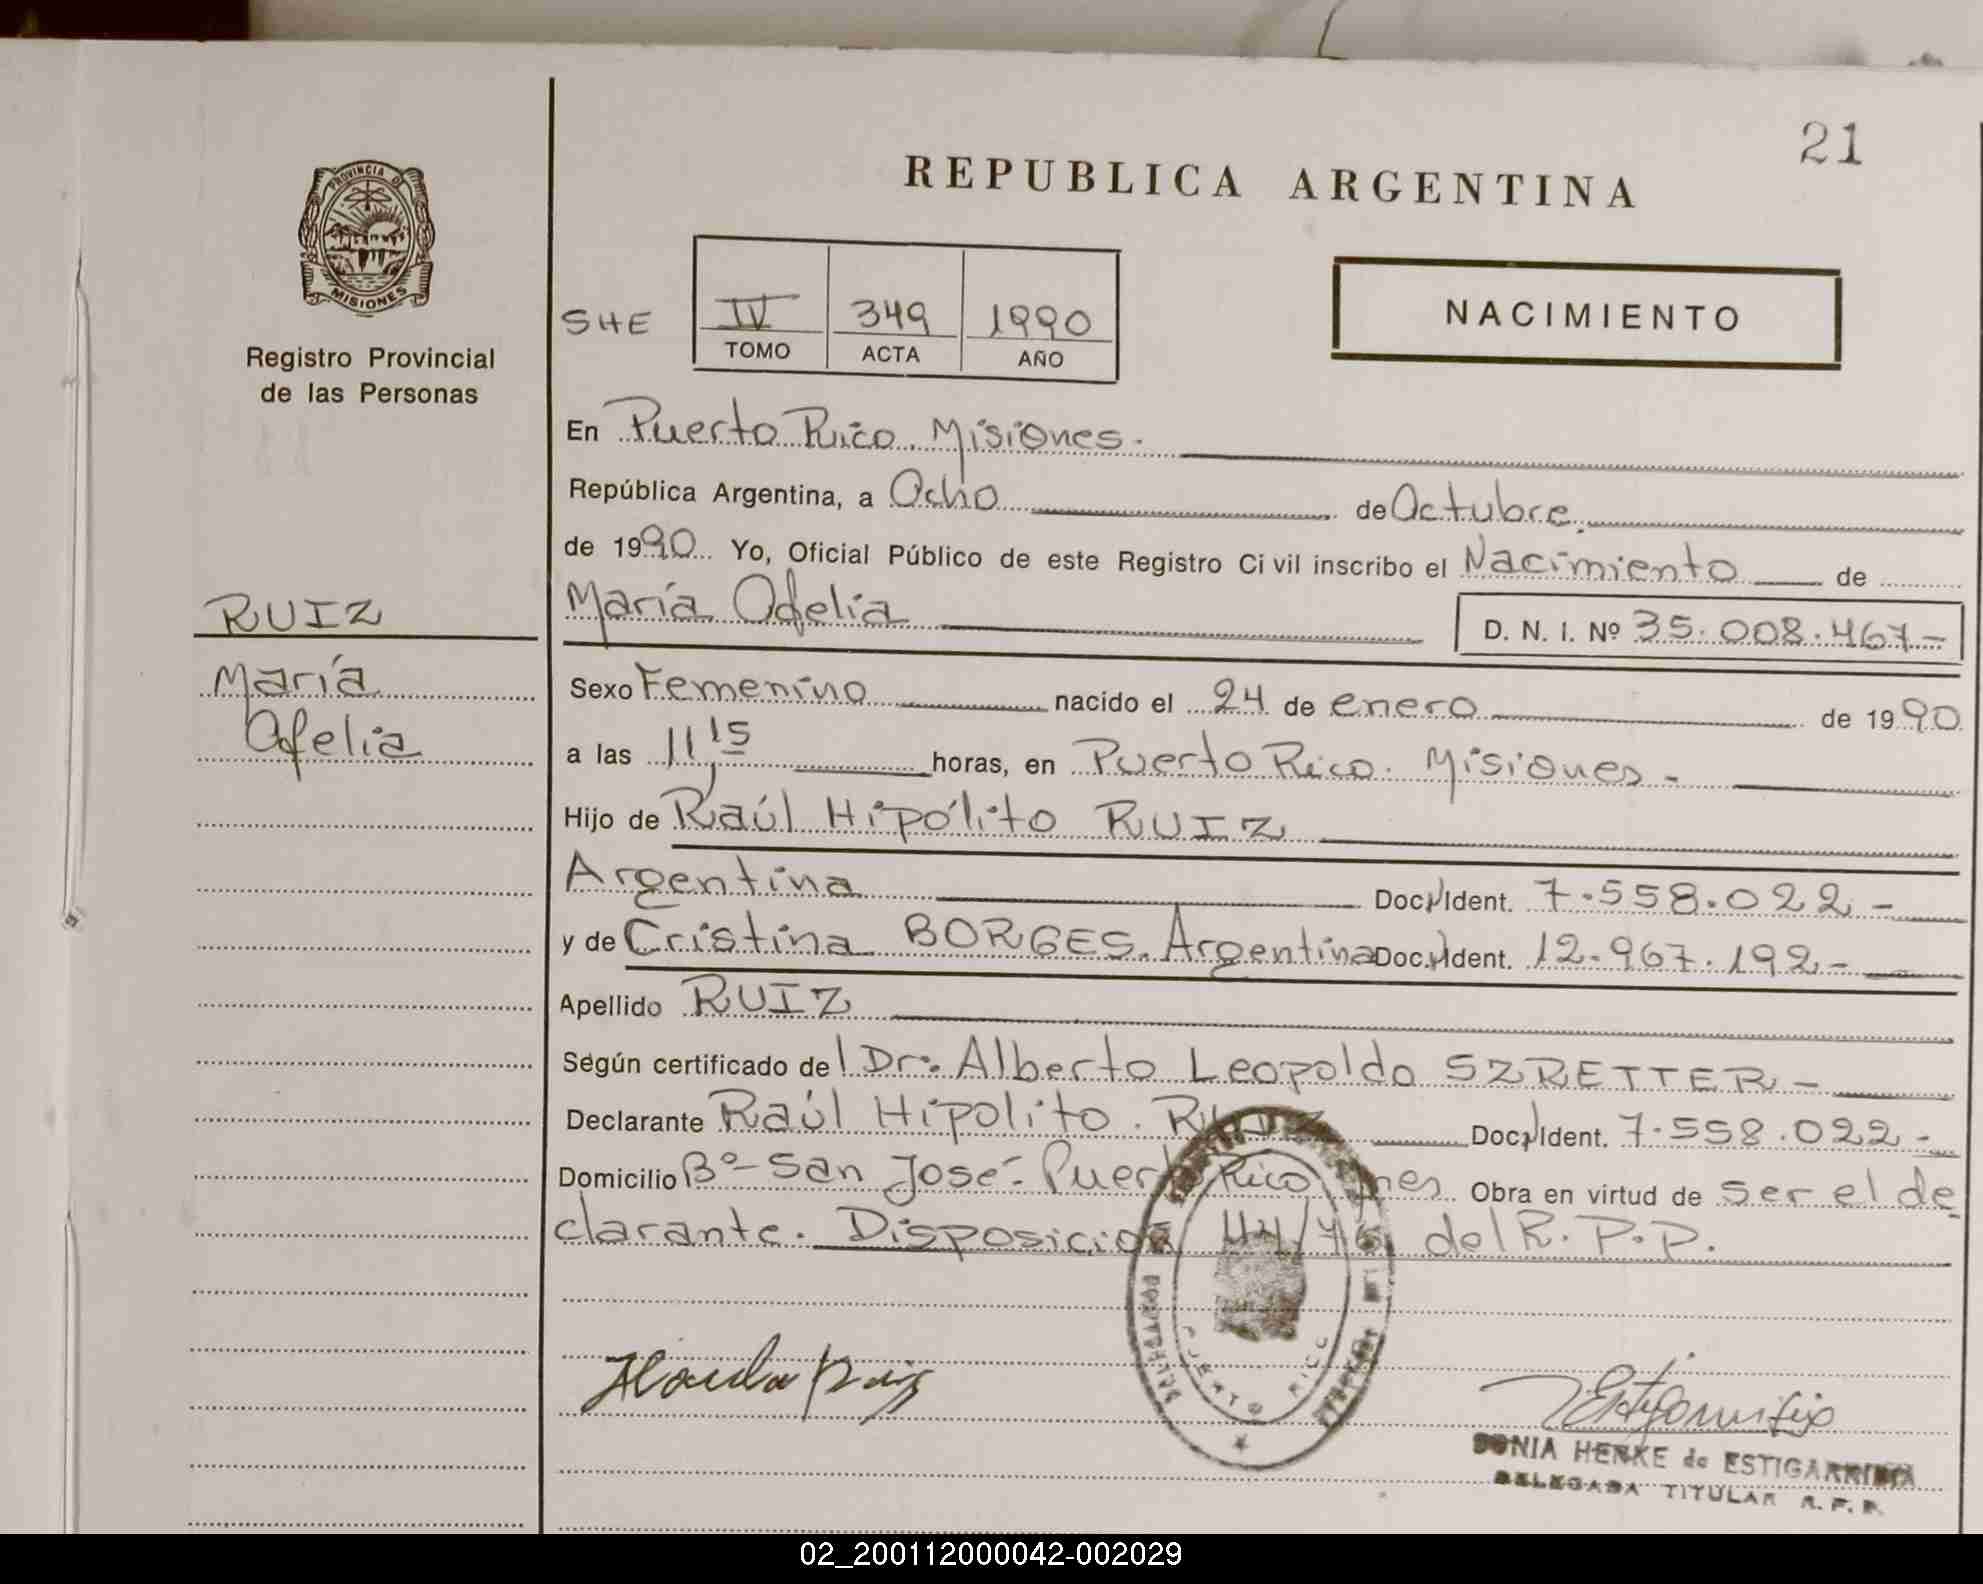 21
REPUBLICA ARGENTINA
PROVINCIA DE
MISIONES
Registro Provincial
de las Personas
SHE
IV 349 1990
TOMO ACTA AÑO
NACIMIENTO
En Puerto Rico. Misiones.
República Argentina, a Ocho de Octubre.
de 1990 Yo, Oficial Público de este Registro Civil inscribo el Nacimiento de
María Ofelia D. N. I. Nº 35.008.467-
RUIZ
María
Ofelia
Sexo Femenino nacido el 24 de enero de 1990
a las 11,15 horas, en Puerto Rico. Misiones-
Hijo de Raúl Hipólito RUIZ
Argentina Doc. Ident. 7.558.022-
y de Cristina BORGES. Argentina Doc. Ident. 12.967.192-
Apellido RUIZ
Según certificado del Dr. Alberto Leopoldo SZRETTER-
Declarante Raúl Hipolito. RUIZ Doc. Ident. 7.558.022-
Domicilio Bº- San José- Puerto Rico Mnes. Obra en virtud de ser el de
clarante. Disposición 44/76 del R.P.P.
PUERTO RICO
SONIA HENKE de ESTIGARRIBIA
DELEGADA TITULAR R. P. P.
02_200112000042-002029